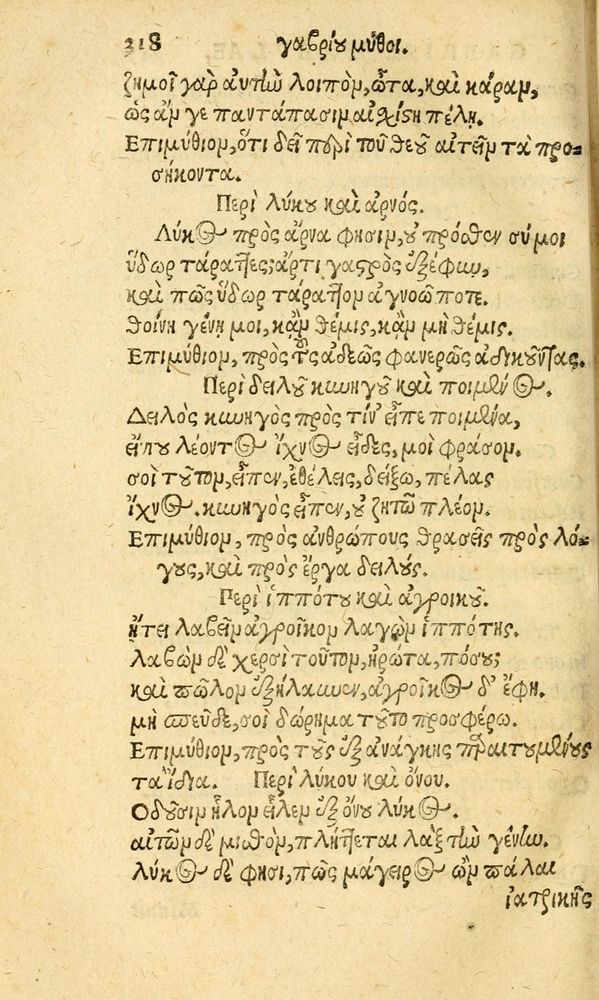 218 γαβρίου μῦθοι.
ζημοῖ γὰρ αὐτὴν λοιπὸν, ὦτα, καὶ κάραν,
ὡς ἄν γε παντάπασιν αἰχίςη πέλῃ.
Επιμύθιον, ὅτι δεῖ περὶ τοῦ θεοῦ αἰτεῖν τὰ προ-
σήκοντα.
Περὶ λύκου καὶ ἀρνός.
Λύκος πρὸς ἄρνα φησιν, οὐ πρόσθεν σύ μοι
ὕδωρ τάραττες; ἄρτι γαςρὸς ἐξέφυν,
καὶ πῶς ὕδωρ τάραττον ἀγνοῶ ποτε.
θοίνη γένῃ μοι, κἂν θέμις, κἂν μὴ θέμις.
Επιμύθιον, πρὸς τοὺς ἀδεῶς φανερῶς ἀδικοῦντας.
Περὶ δειλοῦ κυνηγοῦ καὶ ποιμένος.
Δειλὸς κυνηγὸς πρὸς τίν' εἶπε ποιμένα,
εἴπου λέοντος ἴχνος εἶδες, μοι φράσον.
σοὶ τοῦτον, εἶπεν, ἐθέλεις, δείξω, πέλας
ἴχνος. κυνηγὸς εἶπεν, οὐ ζητῶ πλέον.
Επιμύθιον, πρὸς ἀνθρώπους θρασεῖς πρὸς λό-
γους, καὶ πρὸς ἔργα δειλούς.
Περὶ ἱππότου καὶ ἀγροίκου.
ᾔτει λαβεῖν ἀγροῖκον λαγὼν ἱππότης.
λαβὼν δὲ χερσὶ τοῦτον, ἠρώτα, πόσου;
καὶ πῶλον ἐξήλαυνεν, ἀγροῖκος δ' ἔφη.
μὴ σπεῦδε, σοὶ δώρημα τοῦτο προσφέρω.
Επιμύθιον, πρὸς τοὺς ἐξ ἀνάγκης προϊεμένους
τὰ ἴδια. Περὶ λύκου καὶ ὄνου.
Οδοῦσιν ἧλον εἷλεν ἐξ ὄνου λύκος.
αἰτῶν δὲ μισθὸν, πλήττεται λὰξ τὴν γένυν.
λύκος δὲ φησι, πῶς μάγειρος ὢν πάλαι
ἰατρικῆς